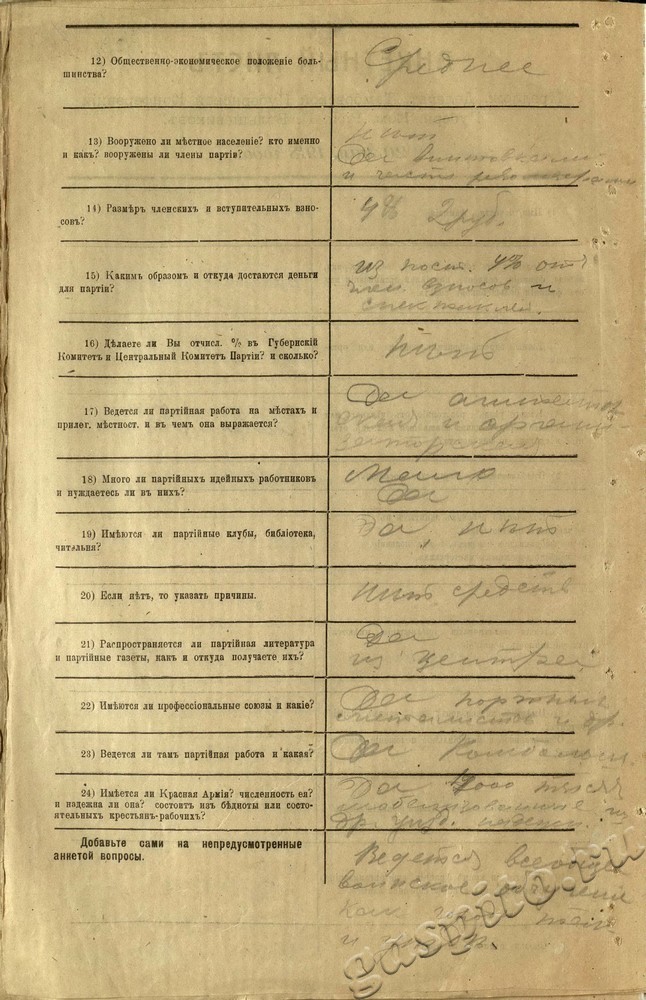 12) Общественно-экономическое положенiе боль-
шинства?
Среднее
13) Вооружено ли мѣстное населенiе? кто именно
и какъ? вооружены ли члены партiи?
нѣтъ
Да винтовками
и часть револьверами
14) Размѣръ членскихъ и вступительныхъ взно-
совъ?
4% 2 руб.
15) Какимъ образомъ и откуда достаются деньги
для партiи?
из пост. 4% отч
член. взносов и
спектаклей.
16) Дѣлаете ли Вы отчисл. % въ Губернскiй
Комитетъ и Центральный Комитетъ Партiи? и сколько?
нѣтъ
17) Ведется ли партiйная работа на мѣстахъ и
прилег. мѣстност. и въ чемъ она выражается?
Да агитатор
ская и органи-
заторская
18) Много ли партiйныхъ идейныхъ работниковъ
и нуждаетесь ли въ нихъ?
Мало
Да
19) Имѣются ли партiйные клубы, библiотека,
читальня?
Да, нѣтъ
20) Если нѣтъ, то указать причины.
нѣтъ средств
21) Распространяется ли партiйная литература
и партiйные газеты, какъ и откуда получаете ихъ?
Да
из центра
22) Имѣются ли профессiональные союзы и какiе?
Да
металлистов и др.
23) Ведется ли тамъ партiйная работа и какая?
Да
24) Имѣется ли Красная Армiя? численность ея?
и надежна ли она? состоитъ изъ бѣдноты или состо-
ятельныхъ крестьянъ-рабочихъ?
Да
мобилизованные из
др. надежн.
Добавьте сами на непредусмотренные
анкетой вопросы.
Ведется всеобщее
воинское обучение
как
и
gaspiko.ru